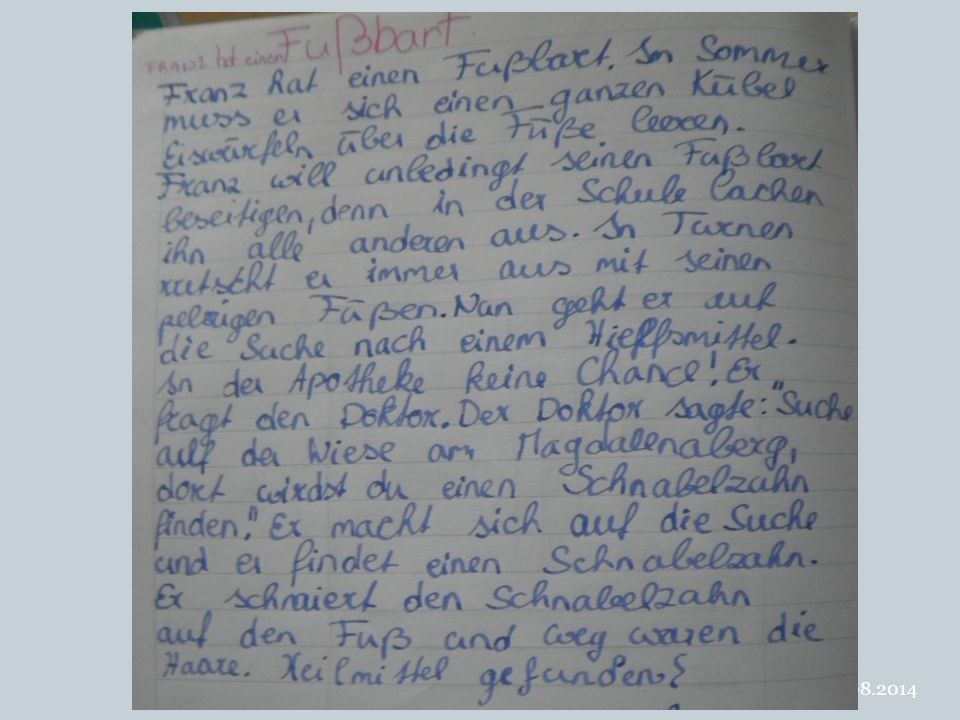 FRANZ hat einen Fußbart.
Franz hat einen Fußbart. In Sommer
muss er sich einen ganzen Kübel
Eiswürfeln über die Füße leeren.
Franz will unbedingt seinen Fußbart
beseitigen, denn in der Schule lachen
ihn alle anderen aus. In Turnen
rutscht er immer aus mit seinen
pelzigen Füßen. Nun geht er auf
die Suche nach einem Hielfsmittel.
In der Apotheke keine Chance! Er
fragt den Doktor. Der Doktor sagte: "Suche
auf der Wiese am Magdallenaberg,
dort wirdst du einen Schnabelzahn
finden." Er macht sich auf die Suche
und er findet einen Schnabelzahn.
Er schmiert den Schnabelzahn
auf den Fuß und weg waren die
Haare. Heilmittel gefunden?
08.2014